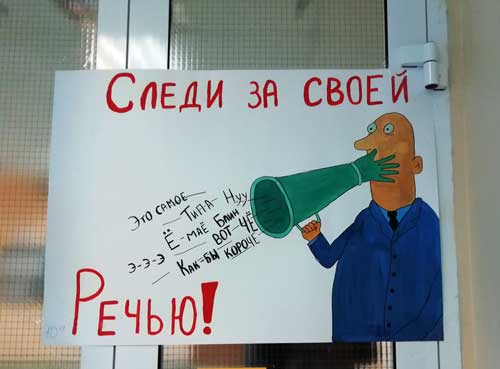 Следи за своей
Это самое
Типа- Нуу
Ё-маё Блин
Э-э-э вот-чё
Как-бы короче
Речью!